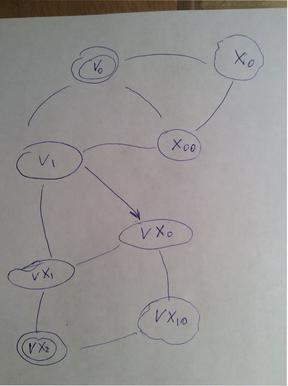 V0
X0
V1
X00
VX0
VX1
VX10
VX2